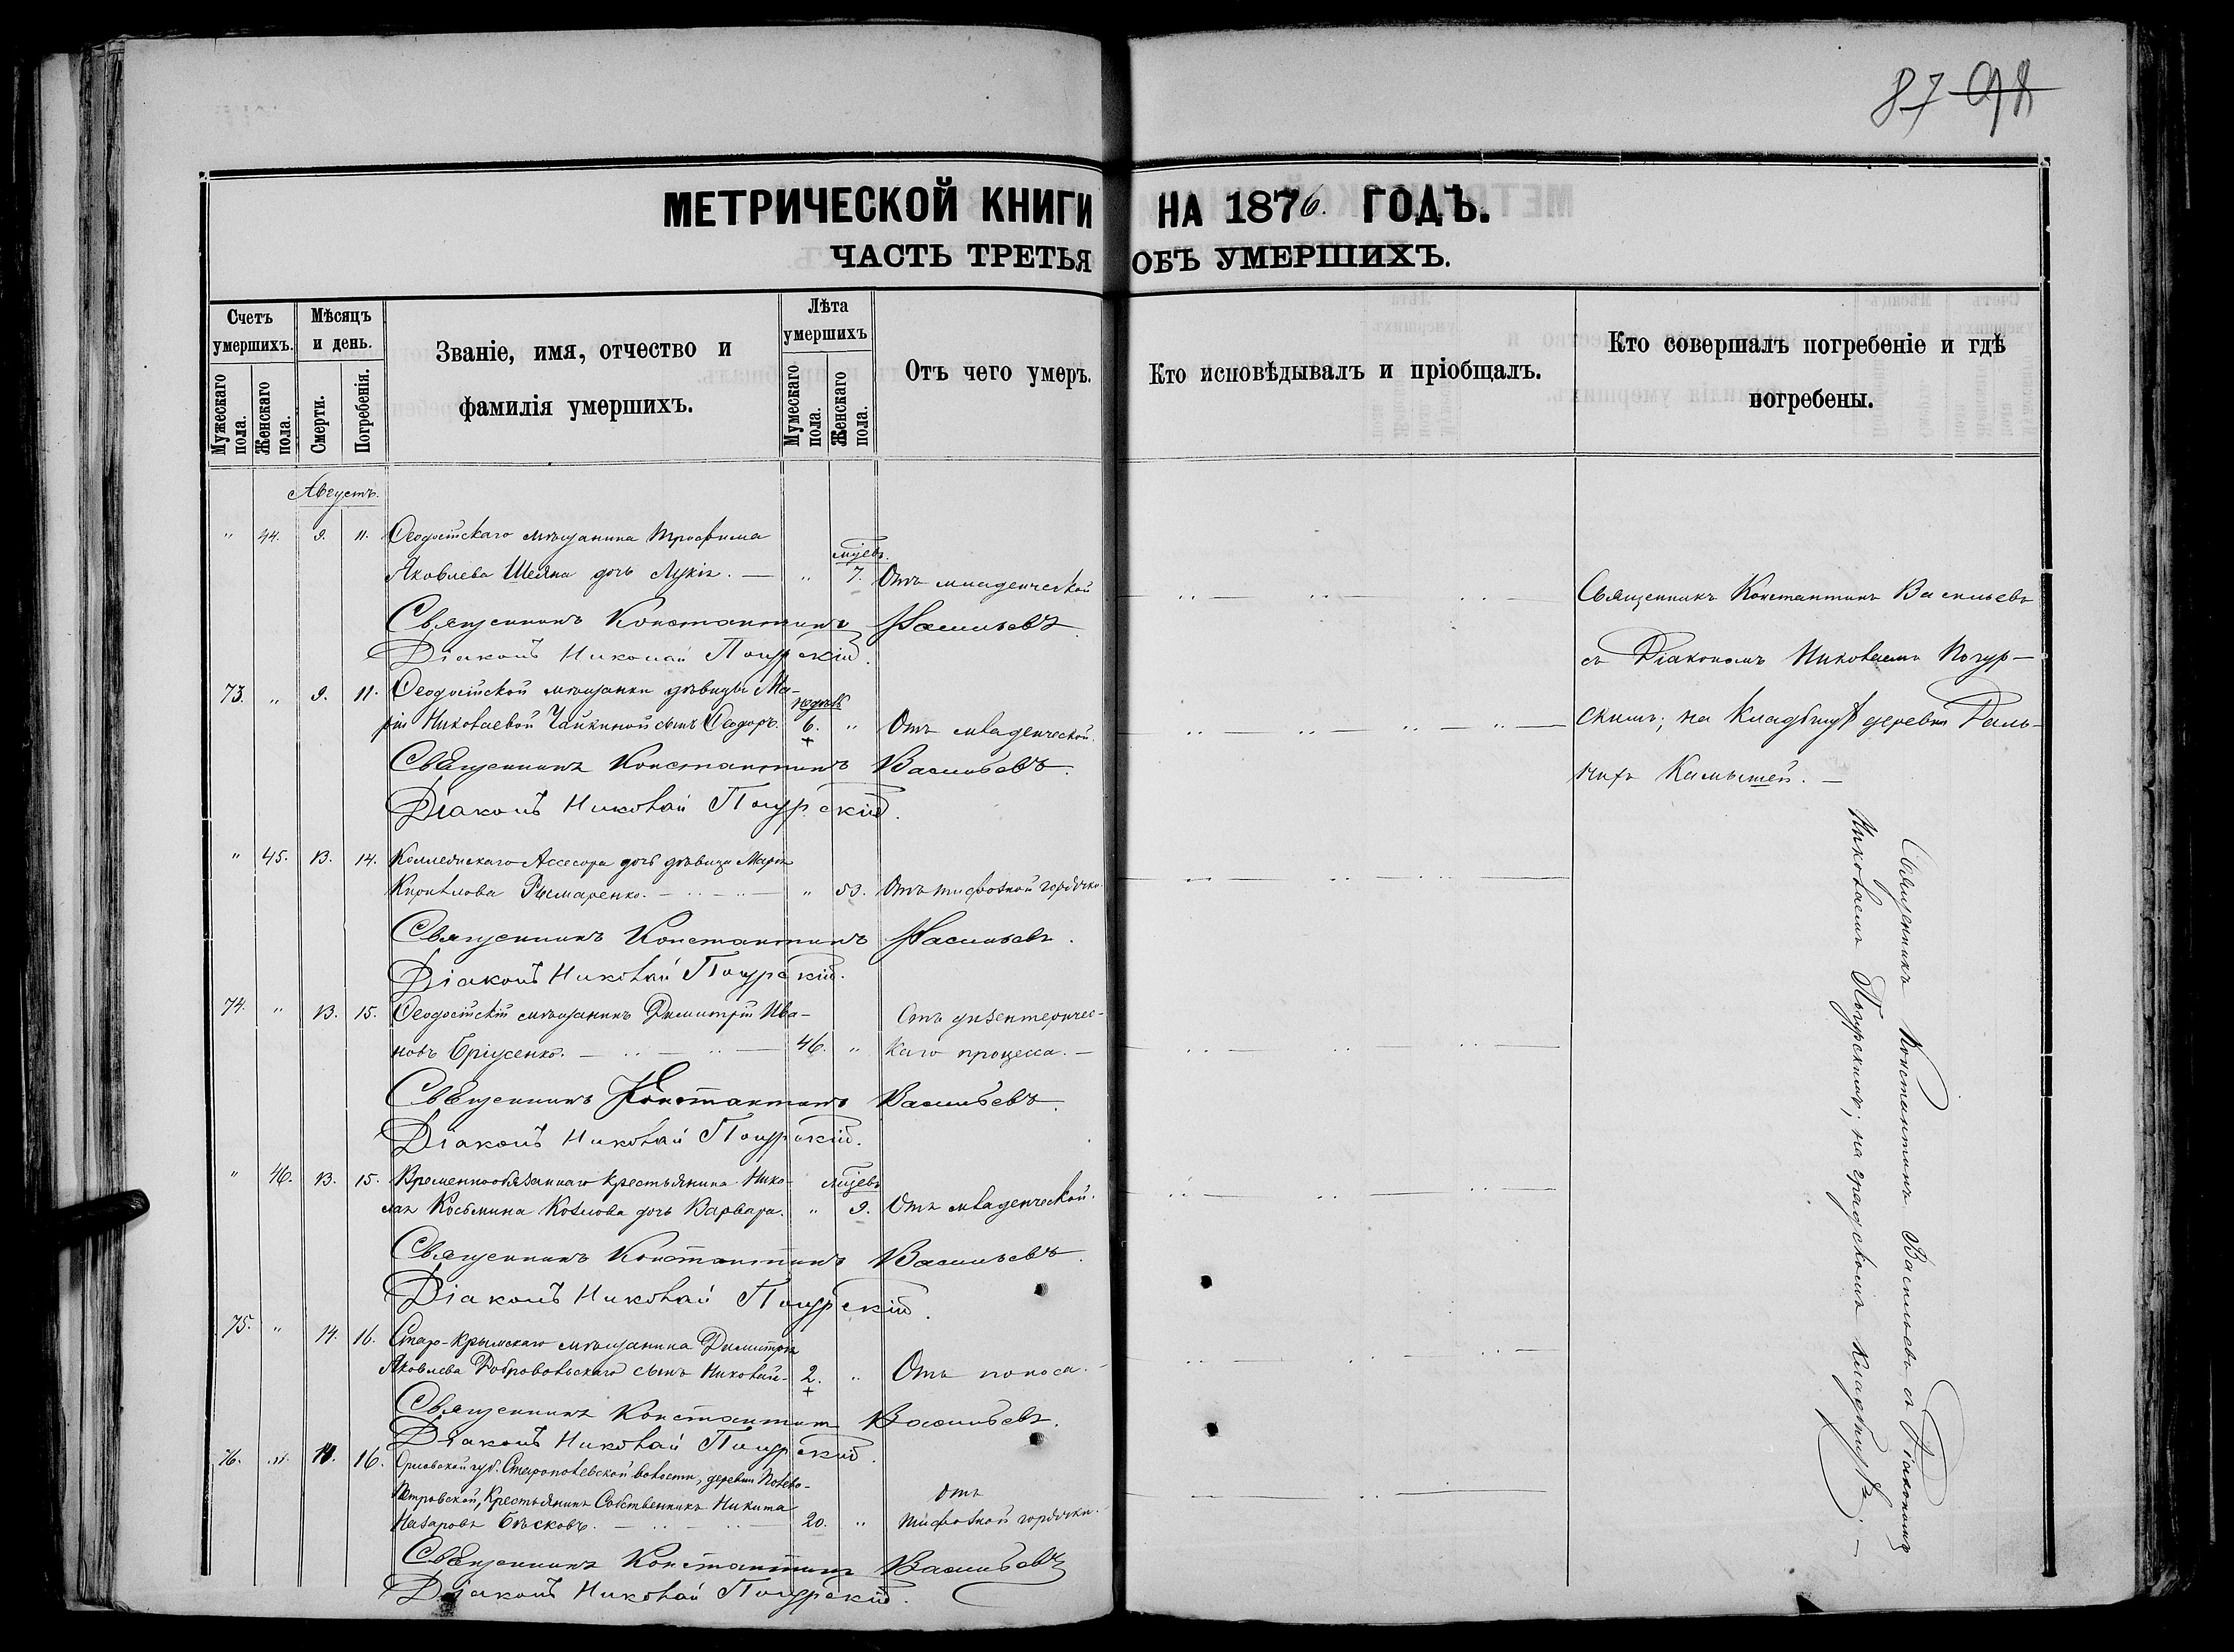 87 98
МЕТРИЧЕСКОЙ КНИГИ НА 1876. ГОДЪ.
ЧАСТЬ ТРЕТЬЯ ОБЪ УМЕРШИХЪ.
Счетъ умершихъ.
Мужескаго пола.
Женскаго пола.
Мѣсяцъ и день.
Смерти.
Погребенія.
Званіе, имя, отчество и
фамилія умершихъ.
Лѣта умершихъ
Мумескаго пола.
Женскаго пола.
Отъ чего умеръ.
Кто исповѣдывалъ и пріобщалъ.
Кто совершалъ погребеніе и гдѣ
погребены.
Августъ.
" 44. 9. 11. Ѳеодосійскаго мѣщанина Трофима
Яковлева дочь Лукія. — " 7. Отъ младенческой
Священникъ Константинъ Васильевъ
Діаконъ Николай Погурскій.
73. " 9. 11. Ѳеодосійской мѣщанки дѣвицы Ма-
ріи Николаевой Чайкиной сынъ Ѳеодоръ. 6. " Отъ младенческой.
Священникъ Константинъ Васильевъ.
Діаконъ Николай Погурскій.
" 45. 13. 14. Коллежскаго Ассесора дочь дѣвица Марія
Кирилова Рымаренко. — " 53. Отъ тифозной горячки.
Священникъ Константинъ Васильевъ.
Діаконъ Николай Погурскій.
74. " 13. 15. Ѳеодосійскій мѣщанинъ Димитрій Ива-
новъ 46. " Отъ дизентеричес-
каго процесса. —
Священникъ Константинъ Васильевъ.
Діаконъ Николай Погурскій.
" 46. 13. 15. Временнообязаннаго крестьянина Нико-
лая Косьмина Козлова дочь Варвара. " 9. Отъ младенческой.
Священникъ Константинъ Васильевъ.
Діаконъ Николай Погурскій.
75. " 14. 16. Старо-Крымскаго мѣщанина Димитрія
Яковлева Добровольскаго сынъ Николай. 2. " Отъ поноса.
Священникъ Константинъ Васильевъ.
Діаконъ Николай Погурскій.
76. " 16. Орловской губ. волости, деревни
Петровской, Крестьянинъ Собственникъ Никита
Назаровъ 20. " Отъ
тифозной горячки.
Священникъ Константинъ Васильевъ
Діаконъ Николай Погурскій.
Священникъ Константинъ Васильевъ
съ Діакономъ Николаемъ Погур-
скимъ; на кладбищѣ деревни Даль-
нихъ Камышей. —
Священникъ Константинъ Васильевъ съ Діакономъ
Николаемъ Погурскимъ; на градскомъ кладбищѣ. —